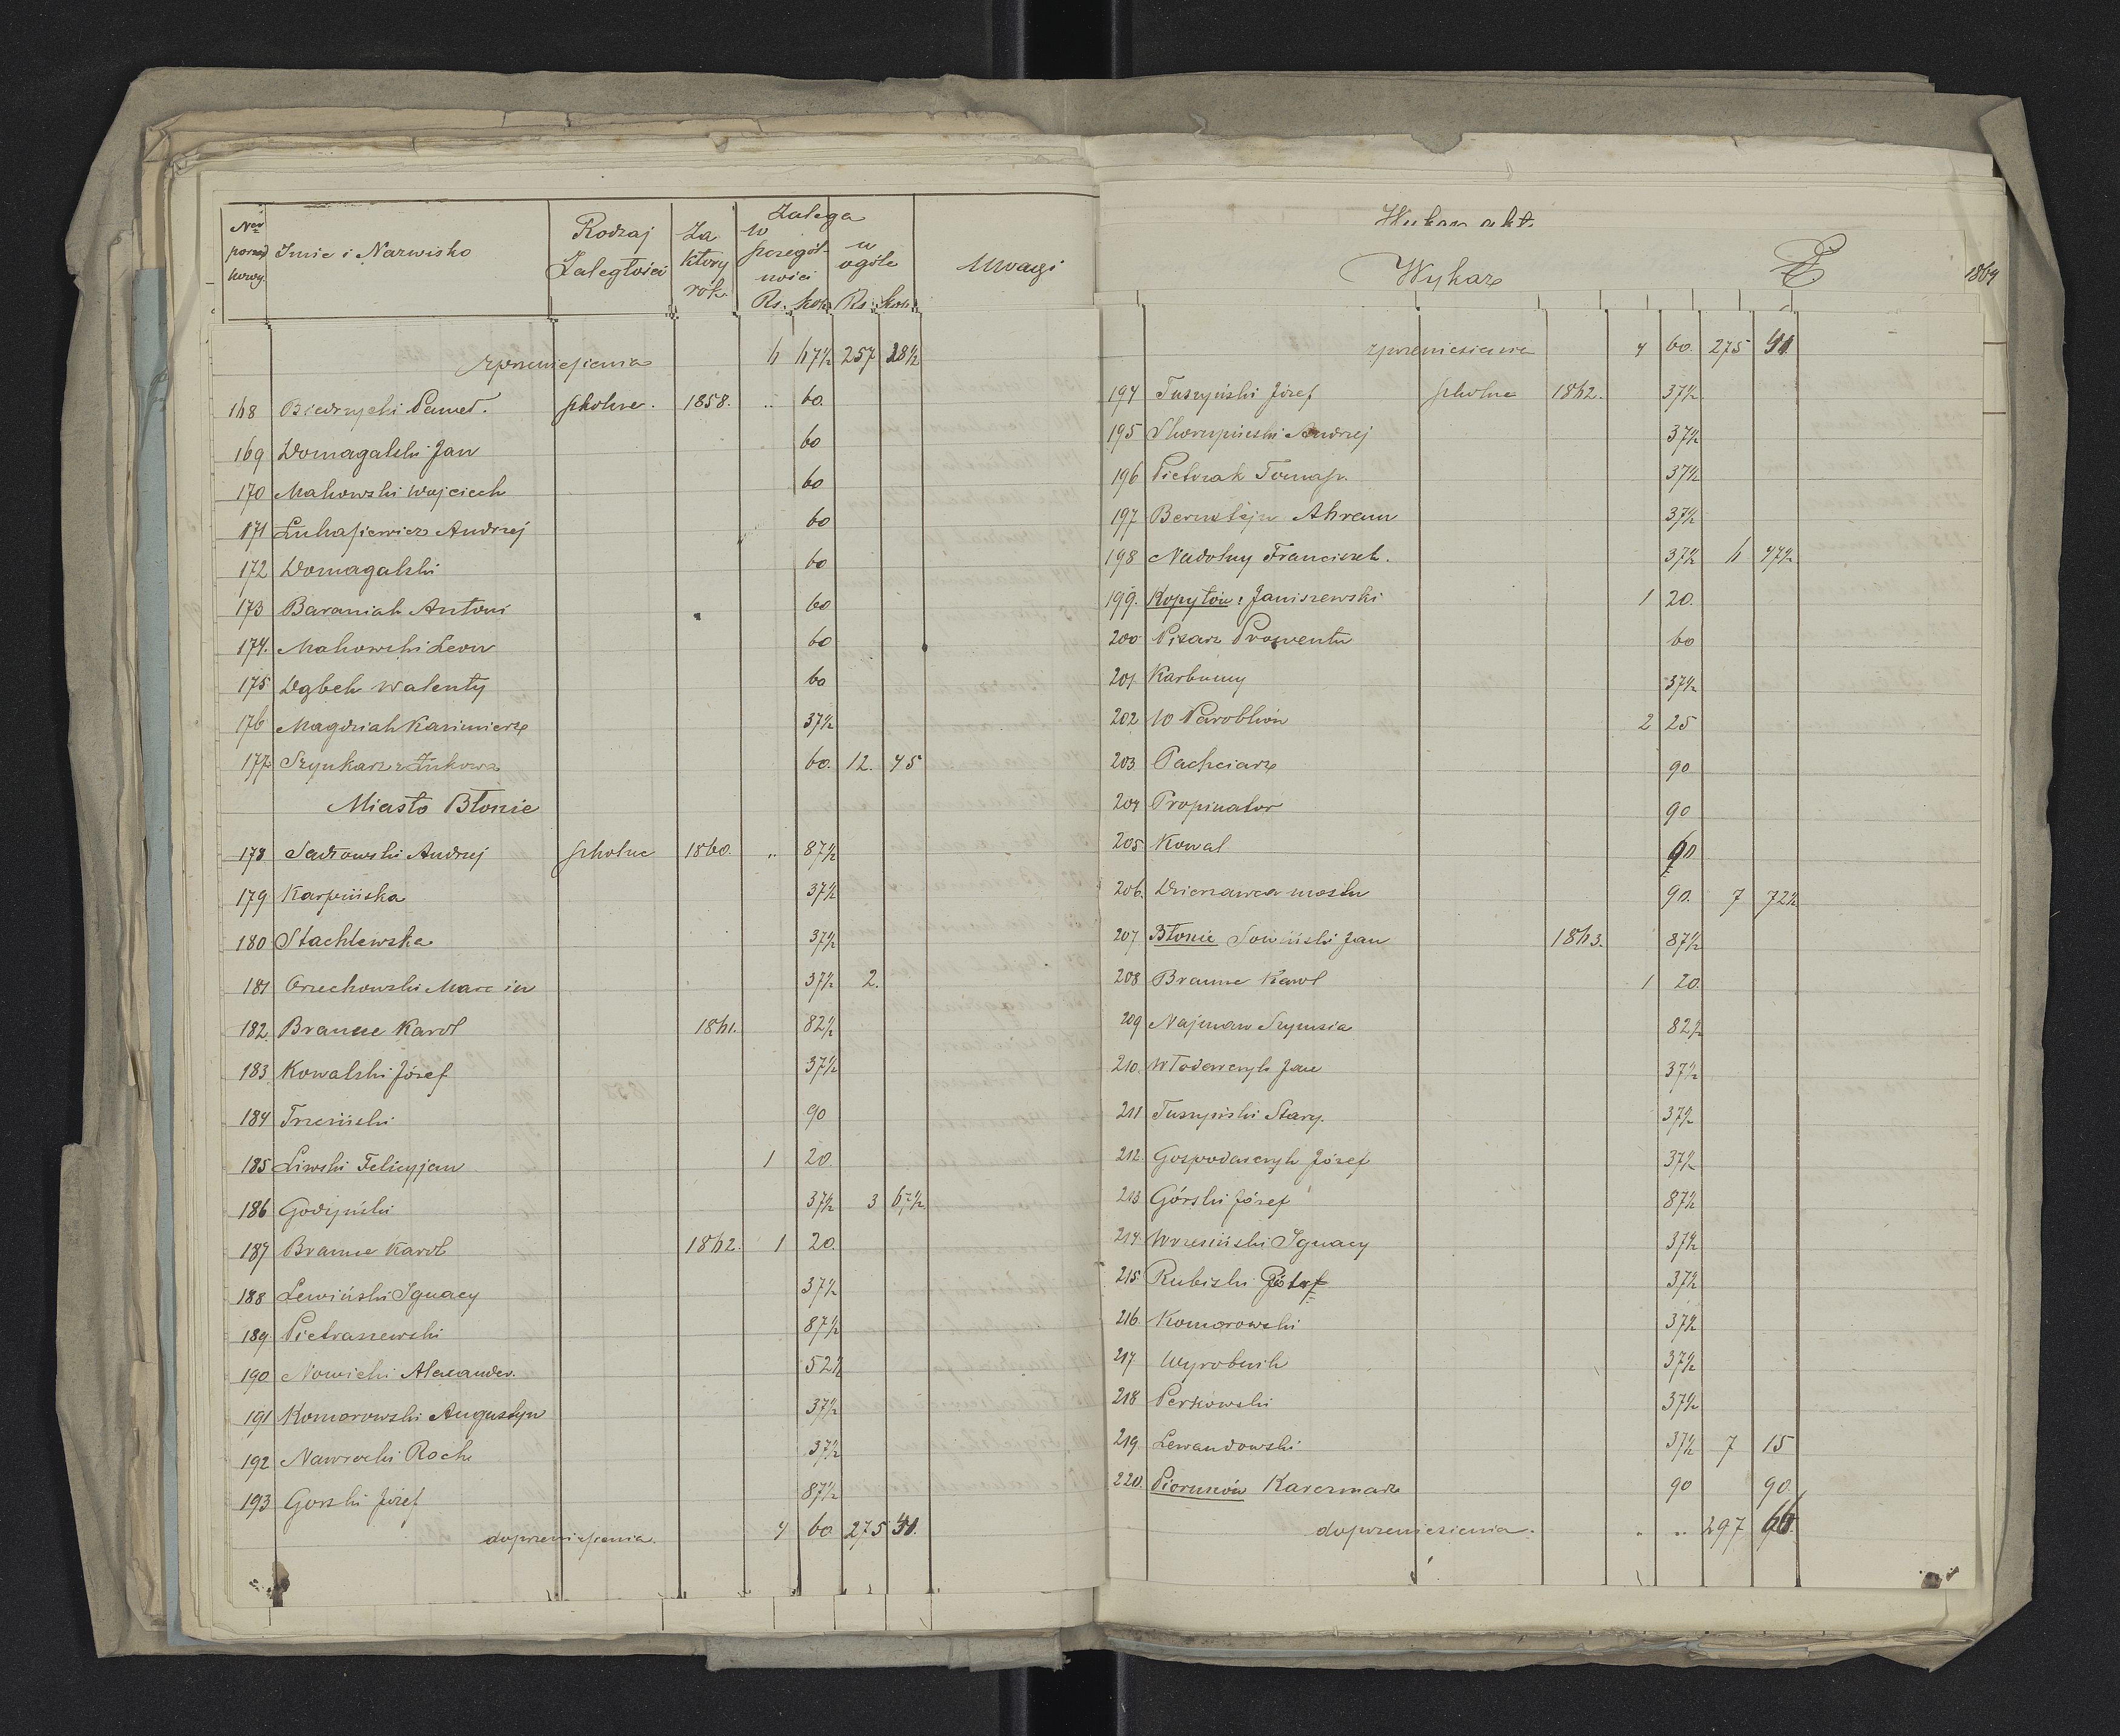 Nr porząd kowy. Imie i Nazwisko Rodzaj Zaległości Za który rok Zalega w szczegół- ności Rs. kop. w ogóle Rs. kop. Uwagi
z przeniesienia 6 67½ 257 28½
168 Biedrzycki Paweł. szkolne. 1858. „ 60.
169 Domagalski Jan 60
170 Makowski Wojciech 60
171 Łukasiewicz Andrzej 60
172 Domagalski 60
173 Baraniak Antoni 60
174. Makowski Leon 60
175 Dąbek Walenty 60
176 Magdziak Kazimierz 37½
177 Szynkarz z Żukowa 60. 12. 45
Miasto Błonie
178 Sadkowski Andrzej szkolne 1860. „ 87½
179 Karpińska 37½
180 Stachlewska 37½
181 Orzechowski Marcin 37½ 2.
182. Braune Karol 1861. 82½
183. Kowalski Józef 37½
184 Trzciński 90
185 Liwski Felicyjan 1 20.
186 Godzyński 37½ 3 67½
187 Braune Karol 1862. 1 20.
188 Lewiński Ignacy 37½
189 Pietraszewski 87½
190 Nowicki Alexander. 52½
191 Komorowski Augustyn 37½
192 Nawrocki Roch 37½
193 Gorski Józef 87½
do przeniesienia. 4 60 275 41.
Wykaz 1864
z przeniesienia 4 60. 275 41
194 Tuszyński Józef szkolne 1862. 37½
195 Skorupiński Andrzej 37½
196 Pietrzak Tomasz. 37½
197 Bernstejn Abram 37½
198 Nadolny Franciszek. 37½ 6 47½
199. Kopytów: Janiszewski 1 20.
200 Pisarz Prowentu 60
201 Karbowy 37½
202 10 Parobków 2 25
203 Pachciarz 90
204 Propinator 90
205 Kowal 60
206. Dzierzawca mostu 90. 7 72½
207 Błonie Sowiński Jan 1863. 87½
208 Braune Karol 1 20.
209 Najman Szymsia 82½
210. Włodarczyk Jan 37½
211 Tuszyński Stary. 37½
212 Gospodarczyk Józef 37½
213 Górski Józef 87½
214 Wrzesiński Ignacy 37½
215 Rubizki Józef 37½
216 Komorowski 37½
217 Wyrobnik 37½
218 Perkowski 37½
219 Lewandowski 37½ 7 15
220. Piorunów Karczmarz 90 90.
do przeniesienia. „ „ 297 66.